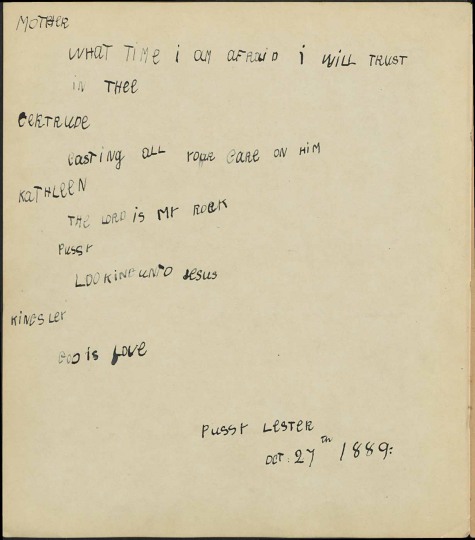 MOTHER
WHAT TIME i AM AFRAID i WILL TRUST
iN THee
GERTRUDE
CASTiNG ALL YOUR CARE ON HiM
KATHLEEN
THE LORD is MY ROCK
PUSSY
LOOKING UNTO Jesus
KINGSLEY
GOD is LOVE
PUSSY LESTER
OCT. 27TH 1889: